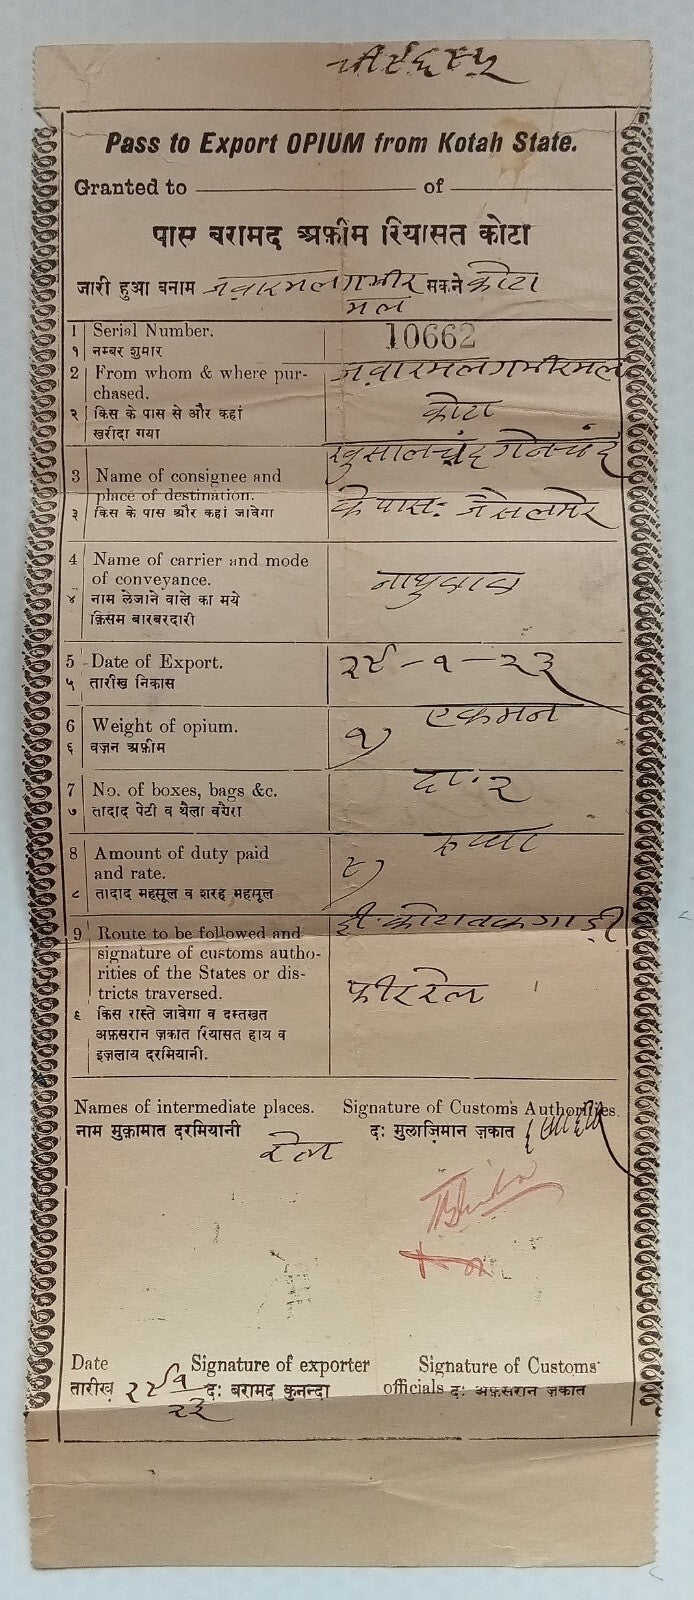 Pass to Export OPIUM from Kotah State.
Granted to of
पास बरामद अफ़ीम रियासत कोटा
जारी हुआ बनाम जवारमल गमीर सकने कोटा
मल
1 Serial Number. 10662
१ नम्बर शुमार
2 From whom & where pur- जवारमल गमीरमल
chased.
२ किस के पास से और कहां कोटा
ख़रीदा गया
खुसालचंद
3 Name of consignee and
place of destination.
३ किस के पास और कहां जावेगा के पास: जैसलमेर
4 Name of carrier and mode
of conveyance.
४ नाम लेजाने वाले का मये
क़िसम बारबरदारी
5 Date of Export. २८-१-२३
५ तारीख़ निकास
6 Weight of opium. एक मन
६ वज़न अफ़ीम १)
7 No. of boxes, bags &c. दा. २
७ तादाद पेटी व थैला वग़ैरा
8 Amount of duty paid
and rate.
८ तादाद महसूल व शरह महसूल
9 Route to be followed and
signature of customs autho-
rities of the States or dis-
tricts traversed. फीर रेल
६ किस रास्ते जावेगा व दस्तख़त
अफ़सरान ज़कात रियासत हाय व
इज़लाय दरमियानी.
Names of intermediate places. Signature of Customs Authorities.
नाम मुक़ामात दरमियानी रेल द: मुलाज़िमान ज़कात
Date Signature of exporter Signature of Customs
तारीख़ २८/१ द: बरामद कुनन्दा officials द: अफ़सरान ज़कात
२३